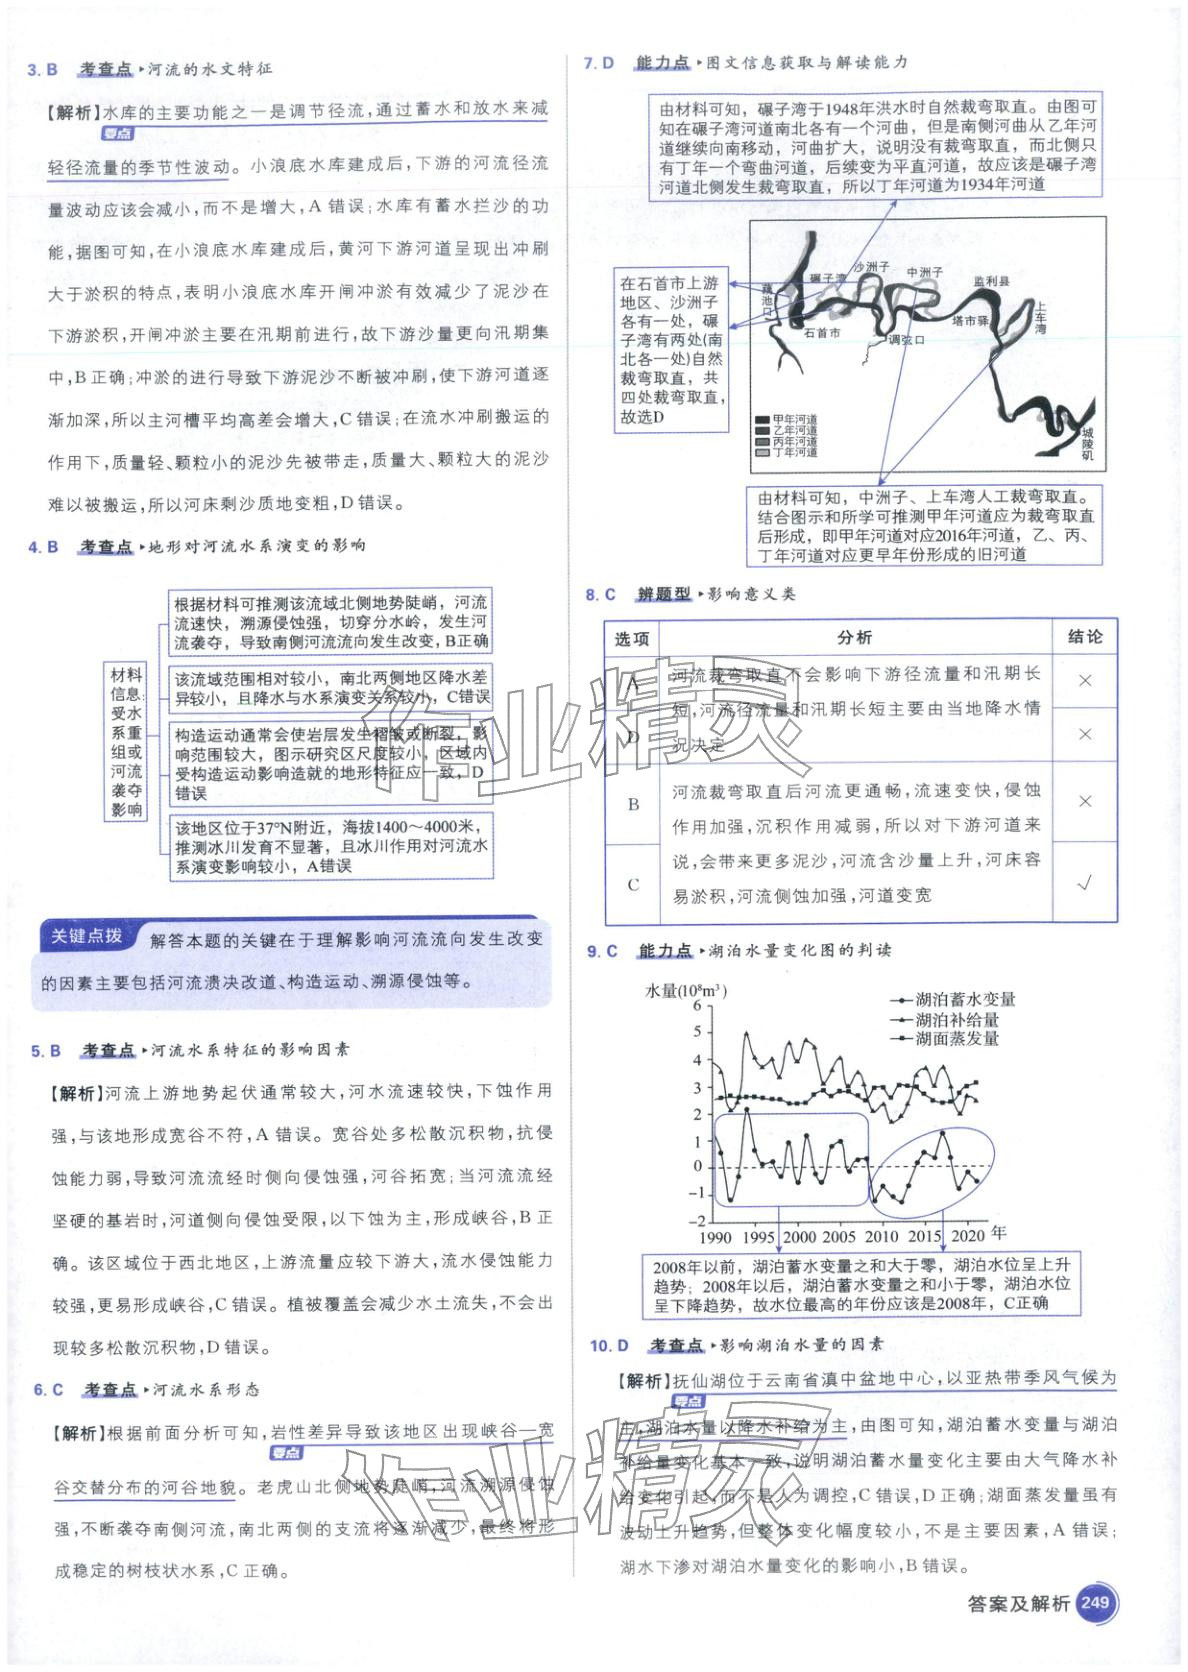 3. B 考查点▸河流的水文特征
【解析】水库的主要功能之一是调节径流,通过蓄水和放水来减
要点
轻径流量的季节性波动。小浪底水库建成后,下游的河流径流
量波动应该会减小,而不是增大,A错误;水库有蓄水拦沙的功
能,据图可知,在小浪底水库建成后,黄河下游河道呈现出冲刷
大于淤积的特点,表明小浪底水库开闸冲淤有效减少了泥沙在
下游淤积,开闸冲淤主要在汛期前进行,故下游沙量更向汛期集
中,B正确;冲淤的进行导致下游泥沙不断被冲刷,使下游河道逐
渐加深,所以主河槽平均高差会增大,C错误;在流水冲刷搬运的
作用下,质量轻、颗粒小的泥沙先被带走,质量大、颗粒大的泥沙
难以被搬运,所以河床剩沙质地变粗,D错误。
4. B 考查点▸地形对河流水系演变的影响
材料
信息:
受水
系重
组或
河流
袭夺
影响
根据材料可推测该流域北侧地势陡峭，河流
流速快，溯源侵蚀强，切穿分水岭，发生河
流袭夺，导致南侧河流流向发生改变，B正确
该流域范围相对较小，南北两侧地区降水差
异较小，且降水与水系演变关系较小，C错误
构造运动通常会使岩层发生褶皱或断裂，影
响范围较大，图示研究区尺度较小，区域内
受构造运动影响造就的地形特征应一致，D
错误
该地区位于37°N附近，海拔1400～4000米，
推测冰川发育不显著，且冰川作用对河流水
系演变影响较小，A错误
关键点拨 解答本题的关键在于理解影响河流流向发生改变
的因素主要包括河流溃决改道、构造运动、溯源侵蚀等。
5. B 考查点▸河流水系特征的影响因素
【解析】河流上游地势起伏通常较大,河水流速较快,下蚀作用
强,与该地形成宽谷不符,A错误。宽谷处多松散沉积物,抗侵
蚀能力弱,导致河流流经时侧向侵蚀强,河谷拓宽;当河流流经
坚硬的基岩时,河道侧向侵蚀受限,以下蚀为主,形成峡谷,B正
确。该区域位于西北地区,上游流量应较下游大,流水侵蚀能力
较强,更易形成峡谷,C错误。植被覆盖会减少水土流失,不会出
现较多松散沉积物,D错误。
6. C 考查点▸河流水系形态
【解析】根据前面分析可知,岩性差异导致该地区出现峡谷—宽
要点
谷交替分布的河谷地貌。老虎山北侧地势陡峭,河流溯源侵蚀
强,不断袭夺南侧河流,南北两侧的支流将逐渐减少,最终将形
成稳定的树枝状水系,C正确。
7. D 能力点▸图文信息获取与解读能力
由材料可知，碾子湾于1948年洪水时自然裁弯取直。由图可
知在碾子湾河道南北各有一个河曲，但是南侧河曲从乙年河
道继续向南移动，河曲扩大，说明没有裁弯取直，而北侧只
有丁年一个弯曲河道，后续变为平直河道，故应该是碾子湾
河道北侧发生裁弯取直，所以丁年河道为1934年河道
在石首市上游
地区、沙洲子
各有一处，碾
子湾有两处(南
北各一处)自然
裁弯取直，共
四处裁弯取直，
故选D
藕池口
碾子湾
沙洲子
中洲子
监利县
上车湾
石首市
调弦口
塔市驿
城陵矶
甲年河道
乙年河道
丙年河道
丁年河道
由材料可知，中洲子、上车湾人工裁弯取直。
结合图示和所学可推测甲年河道应为裁弯取直
后形成，即甲年河道对应2016年河道，乙、丙、
丁年河道对应更早年份形成的旧河道
8. C 辨题型▸影响意义类
选项 分析 结论
A 河流裁弯取直不会影响下游径流量和汛期长 ×
短,河流径流量和汛期长短主要由当地降水情
D 况决定 ×
河流裁弯取直后河流更通畅,流速变快,侵蚀
B 作用加强,沉积作用减弱,所以对下游河道来 ×
说,会带来更多泥沙,河流含沙量上升,河床容
C 易淤积,河流侧蚀加强,河道变宽 √
9. C 能力点▸湖泊水量变化图的判读
水量(10⁸m³)
湖泊蓄水变量
湖泊补给量
湖面蒸发量
6
5
4
3
2
1
0
-1
-2
1990 1995 2000 2005 2010 2015 2020 年
2008年以前，湖泊蓄水变量之和大于零，湖泊水位呈上升
趋势；2008年以后，湖泊蓄水变量之和小于零，湖泊水位
呈下降趋势，故水位最高的年份应该是2008年，C正确
10. D 考查点▸影响湖泊水量的因素
【解析】抚仙湖位于云南省滇中盆地中心,以亚热带季风气候为
要点
主,湖泊水量以降水补给为主,由图可知,湖泊蓄水变量与湖泊
补给量变化基本一致,说明湖泊蓄水量变化主要由大气降水补
给变化引起,而不是人为调控,C错误,D正确;湖面蒸发量虽有
波动上升趋势,但整体变化幅度较小,不是主要因素,A错误;
湖水下渗对湖泊水量变化的影响小,B错误。
答案及解析 249
作业精灵
作业精灵